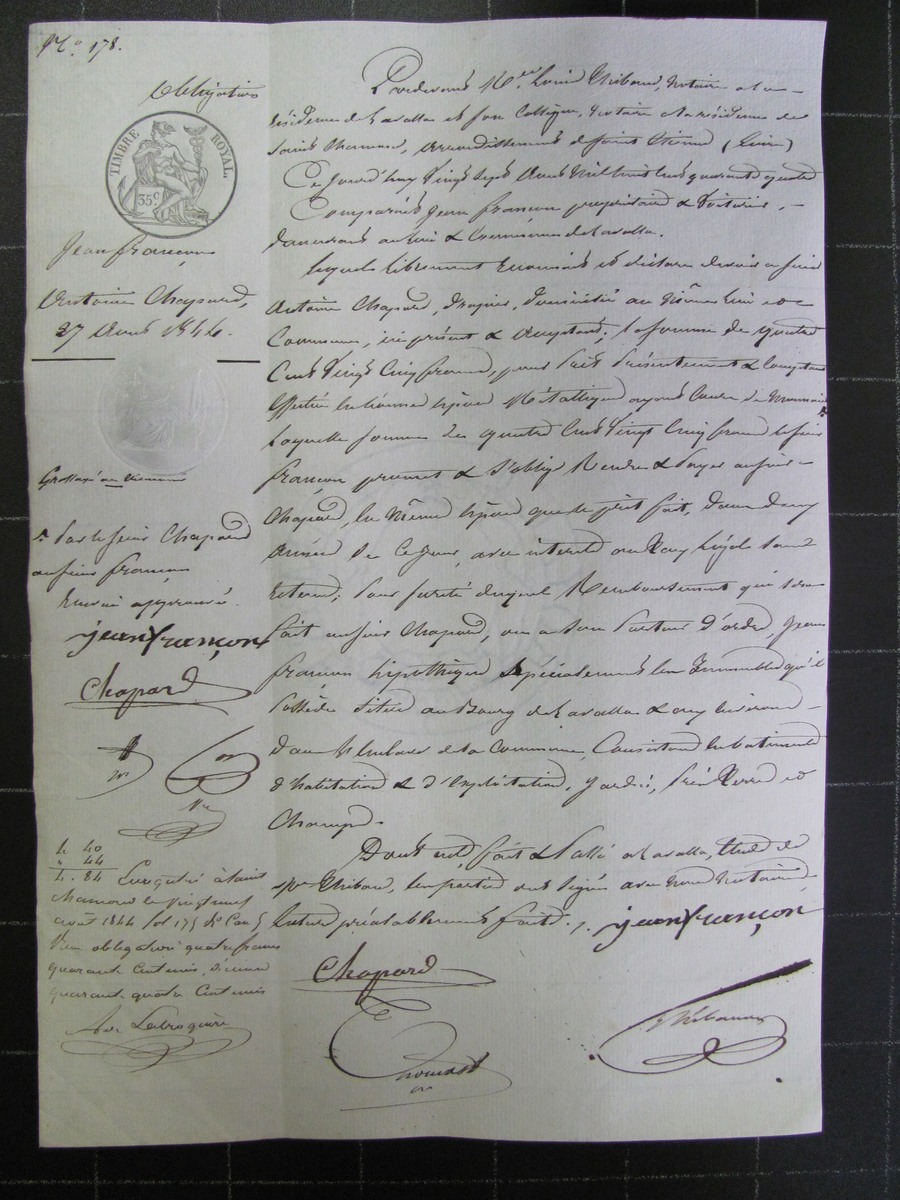 N.o 178.
Obligation
TIMBRE ROYAL.
35 c.
Jean françon
Antoine Chapard,
27 Aout 1844.
Grossoyé au
Par le sieur Chapard
au sieur françon
Renvoi approuvé.
jean françon
Chapard
4. 40
". 44
4. 84 Enregistré à Saint
Chamond le vingt neuf
août 1844 fol 175 Ro Cas 5
Reçu obligation quatre francs
quarante centimes, décime
quarante quatre centimes
Pardevant Me. Louis Thibaud, Notaire à la
résidence de Lavalla et son Collègue, Notaire à la résidence de
Saint Chamond, arrondissement de Saint Etienne (Loire)
Ce Jourd'huy Vingt sept Aout Mil huit cent quarante quatre
Comparait Jean françon propriétaire &
demeurant au lieu & Commune de Lavalla.
Lequel librement reconnait et déclare devoir au sieur
Antoine Chapard, domicilié au même lieu et
Commune, ici présent & acceptant; la somme de quatre
Cent Vingt Cinq francs, pour prêt présentement & comptant
effectué en bonnes espèces Métalliques ayant Cours de Monnaie
Laquelle somme de quatre Cent Vingt Cinq francs le sieur
françon promet & s'oblige Rendre & Payer au sieur
Chapard, en même espèces que le prêt fait, dans deux
années de ce jour, avec intérêt au Taux légal sans
retenue; Pour sureté duquel Remboursement qui sera
fait au sieur Chapard, ou à son Porteur d'ordre, Jean
françon hipothèque Spécialement les Immeubles qu'il
Possède Situés au Bourg de Lavalla & aux environs
dans de la Commune, Consistant en batiments
d'habitation & d'Exploitation, Jardin, Prés, Terre et
Champs.
Dont acte, fait & Passé à Lavalla, Etude de
Me Thibaud, les parties ont signé avec nous Notaires
lecture préalablement faite.
jean françon
Chapard
Thibaud